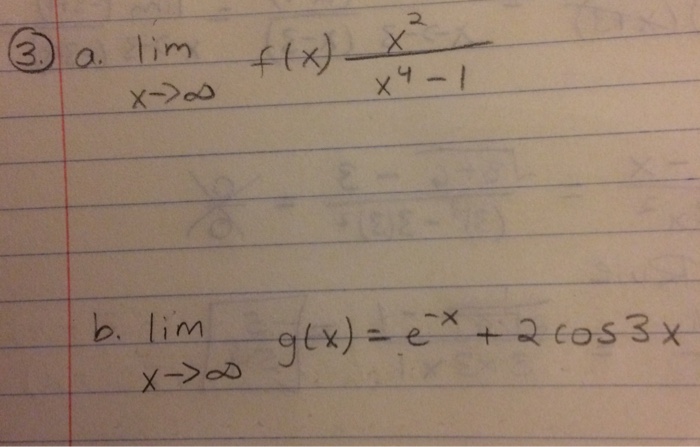 3. a. lim x->∞ f(x) x²/(x⁴-1)
b. lim x->∞ g(x) = e^-x + 2 cos3x